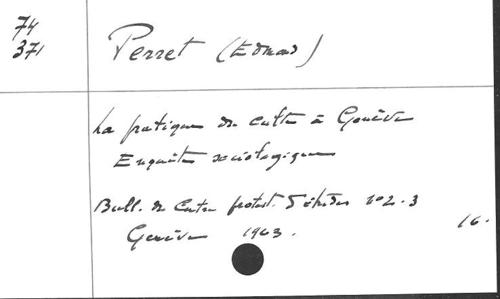 74
371
Perret (Edmond)
La pratique du culte à Genève
Enquête sociologique
Bull. du Centre protest. d'études n° 2-3
Genève 1963.
16.